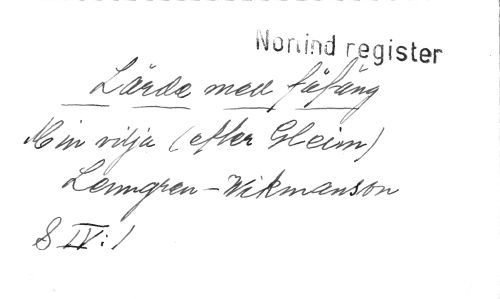 Norlind register
Lärde med fåfäng
Min vilja (efter Gleim)
Lenngren-Wikmanson
S IV:1